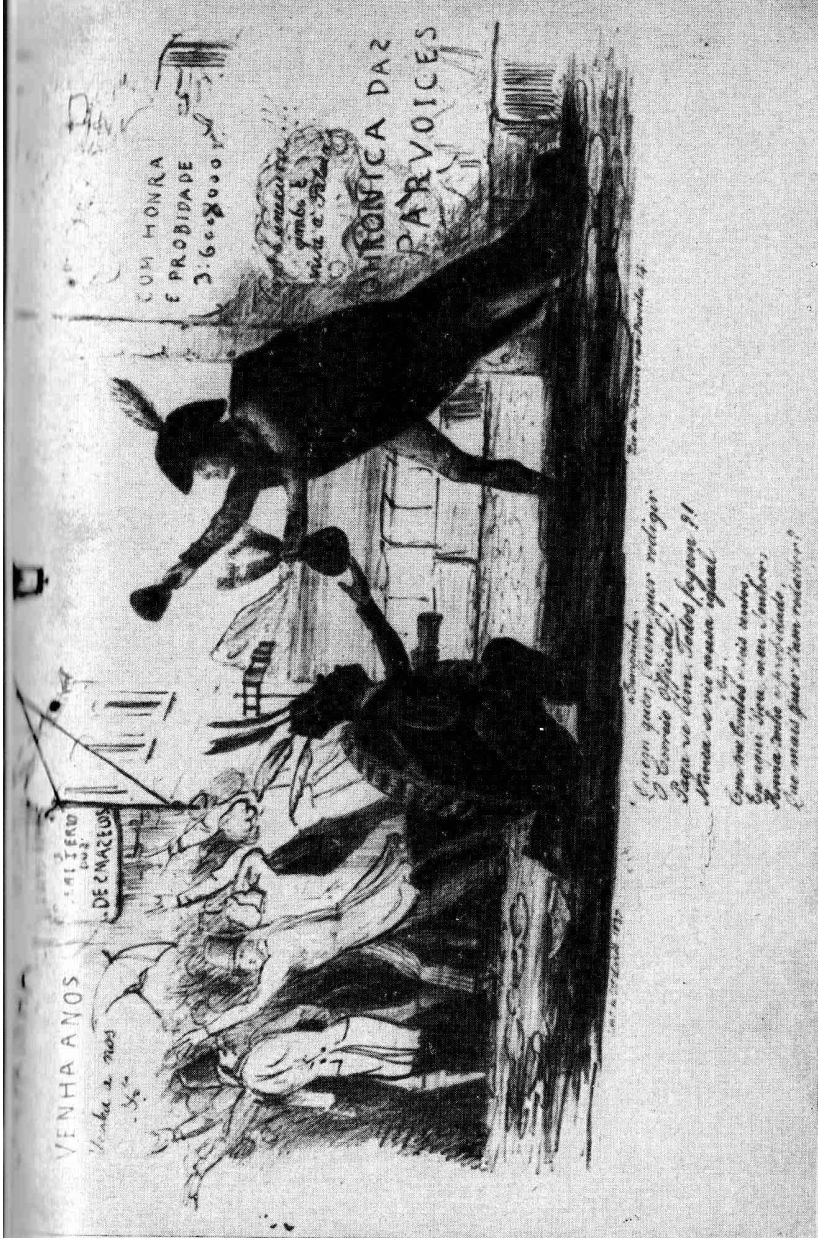 VENHA ANOS
Venha a nos
DEZMAZELOS
COM HONRA
E PROBIDADE
3:600$000
gimbo é
viva a
CHRONICA DAZ
PARVOICES
Rio de Janeiro rua 14.
a Campainha.
Quem quer; quem quer redigir
O Correio Official!
Paga-se bem. Todos fogem?!
Nunca se viu cousa igual
o Cujo.
Com tres Contos e seis centos,
Eu aqui 'stou, meu Senhor;
Honra tenho e probidade,
Que mais quer d'um redactor?